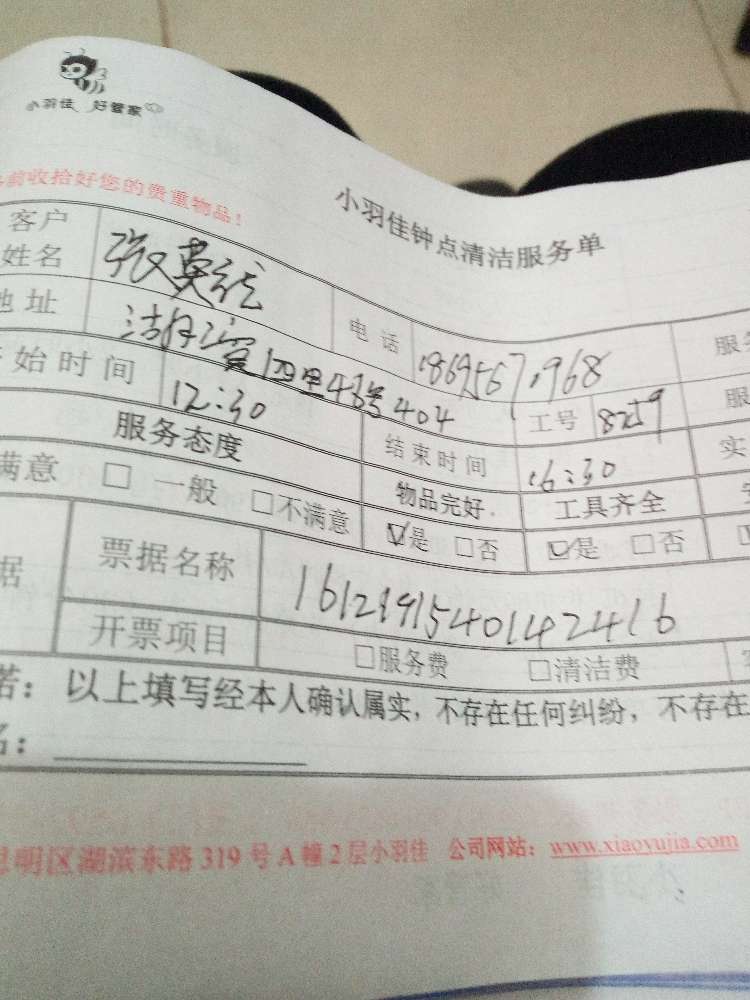 小羽佳 好管家
前收拾好您的贵重物品!
小羽佳钟点清洁服务单
客户姓名 张英 电话 18695671968 服务
地址 里43号404 工号 8259 服
始时间 12:30 结束时间 16:30 实
服务态度 物品完好 工具齐全
满意 □ 一般 □不满意 ☑是 □否 ☑是 □否
据 票据名称 16129191540142416
开票项目 □服务费 □清洁费
诺：以上填写经本人确认属实，不存在任何纠纷，不存在
名：
思明区湖滨东路319号A幢2层小羽佳 公司网站：www.xiaoyujia.com